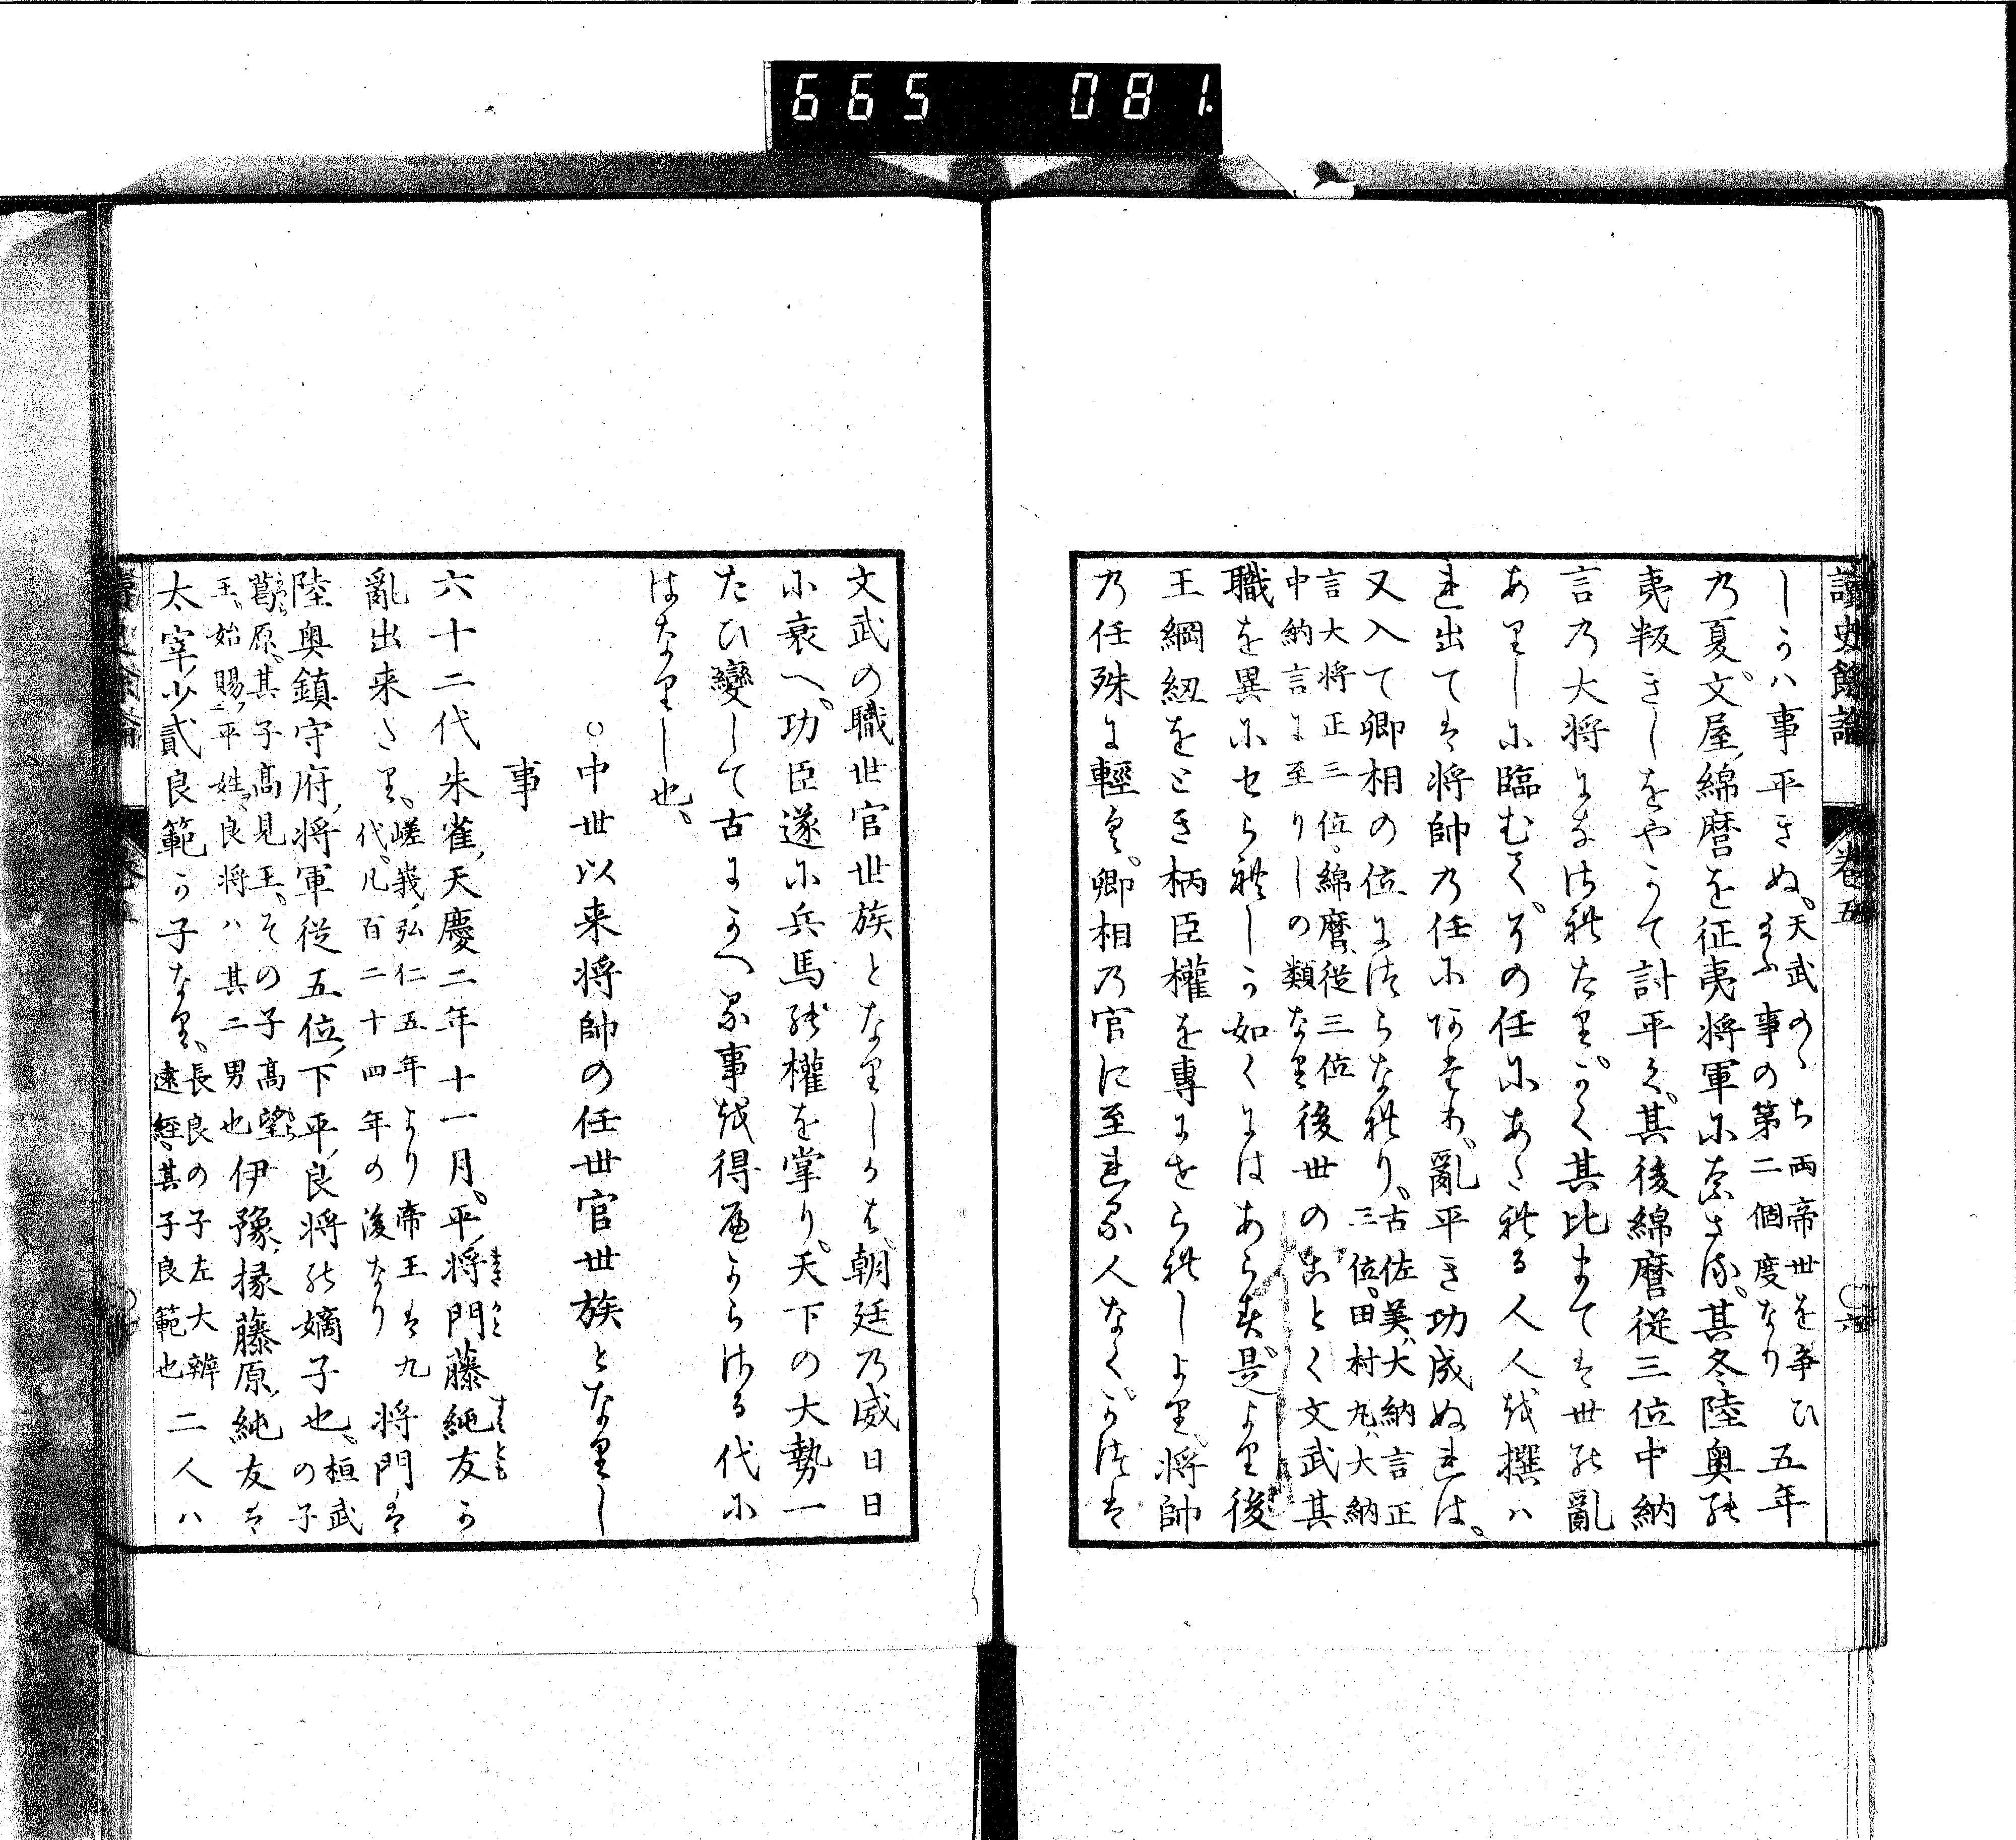 665 081
讀史餘論 卷五 六
しかハ事平きぬ。天武のゝち両帝世を争ひ
給ふ事の第二個度なり 五年
乃夏。文屋綿麿を征夷将軍になさる。其冬陸奥の
夷叛きしをやかて討平く。其後綿麿従三位中納
言乃大将になされたり。かく其比まては世の亂
ありしに臨むて。その任にあたれる人人を撰ハ
れ出ては将帥乃任にあたり。亂平き功成ぬれは。
又入て卿相の位につらなれり。古佐美ハ大納言正
三位。田村丸ハ大納
言大将正三位。綿麿ハ従三位
中納言に至りしの類なり 後世のことく文武其
職を異にせられしか如くにはあらす。是より後
王綱紐をとき柄臣權を專にせられしより。将帥
乃任殊に輕く。卿相乃官に至れる人なく。かつは
文武の職世官世族となりしかは。朝廷乃威日日
に衰へ。功臣遂に兵馬の權を掌り。天下の大勢一
たひ變して古にかへる事を得へからさる代に
はなりし也。
○中世以来将帥の任世官世族となりし
事
六十二代朱雀天慶二年十一月。平将門藤純友か
亂出来たり。嵯峩弘仁五年より帝王は九
代。凡百二十四年の後なり 将門は
陸奥鎮守府将軍従五位下平良将の嫡子也。桓武
の子
葛原。其子髙見王。その子髙望
王。始賜平姓。良将ハ其二男也 伊豫掾藤原純友は
太宰少貳良範か子なり。長良の子左大辨
遠經。其子良範也 二人ハ